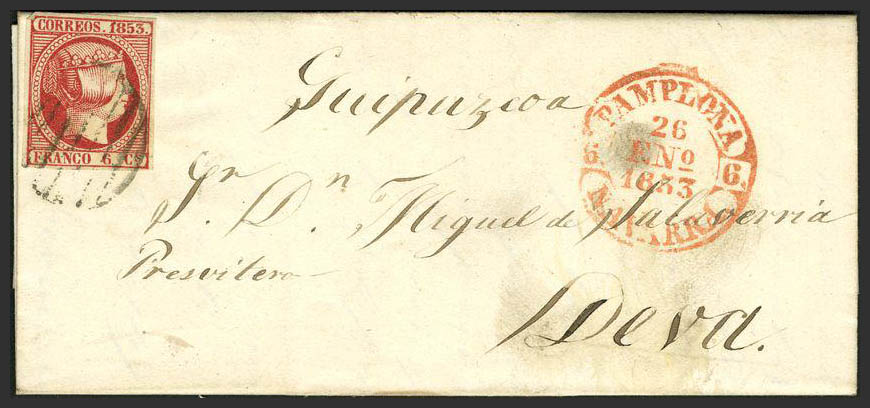 CORREOS. 1853.
FRANCO 6. Cs
Guipuzcoa
PAMPLONA
26
ENº
1853
6.
6.
NAVARRA
Sr. Dn. Miguel de Salaverria
Presvitero
Deva.